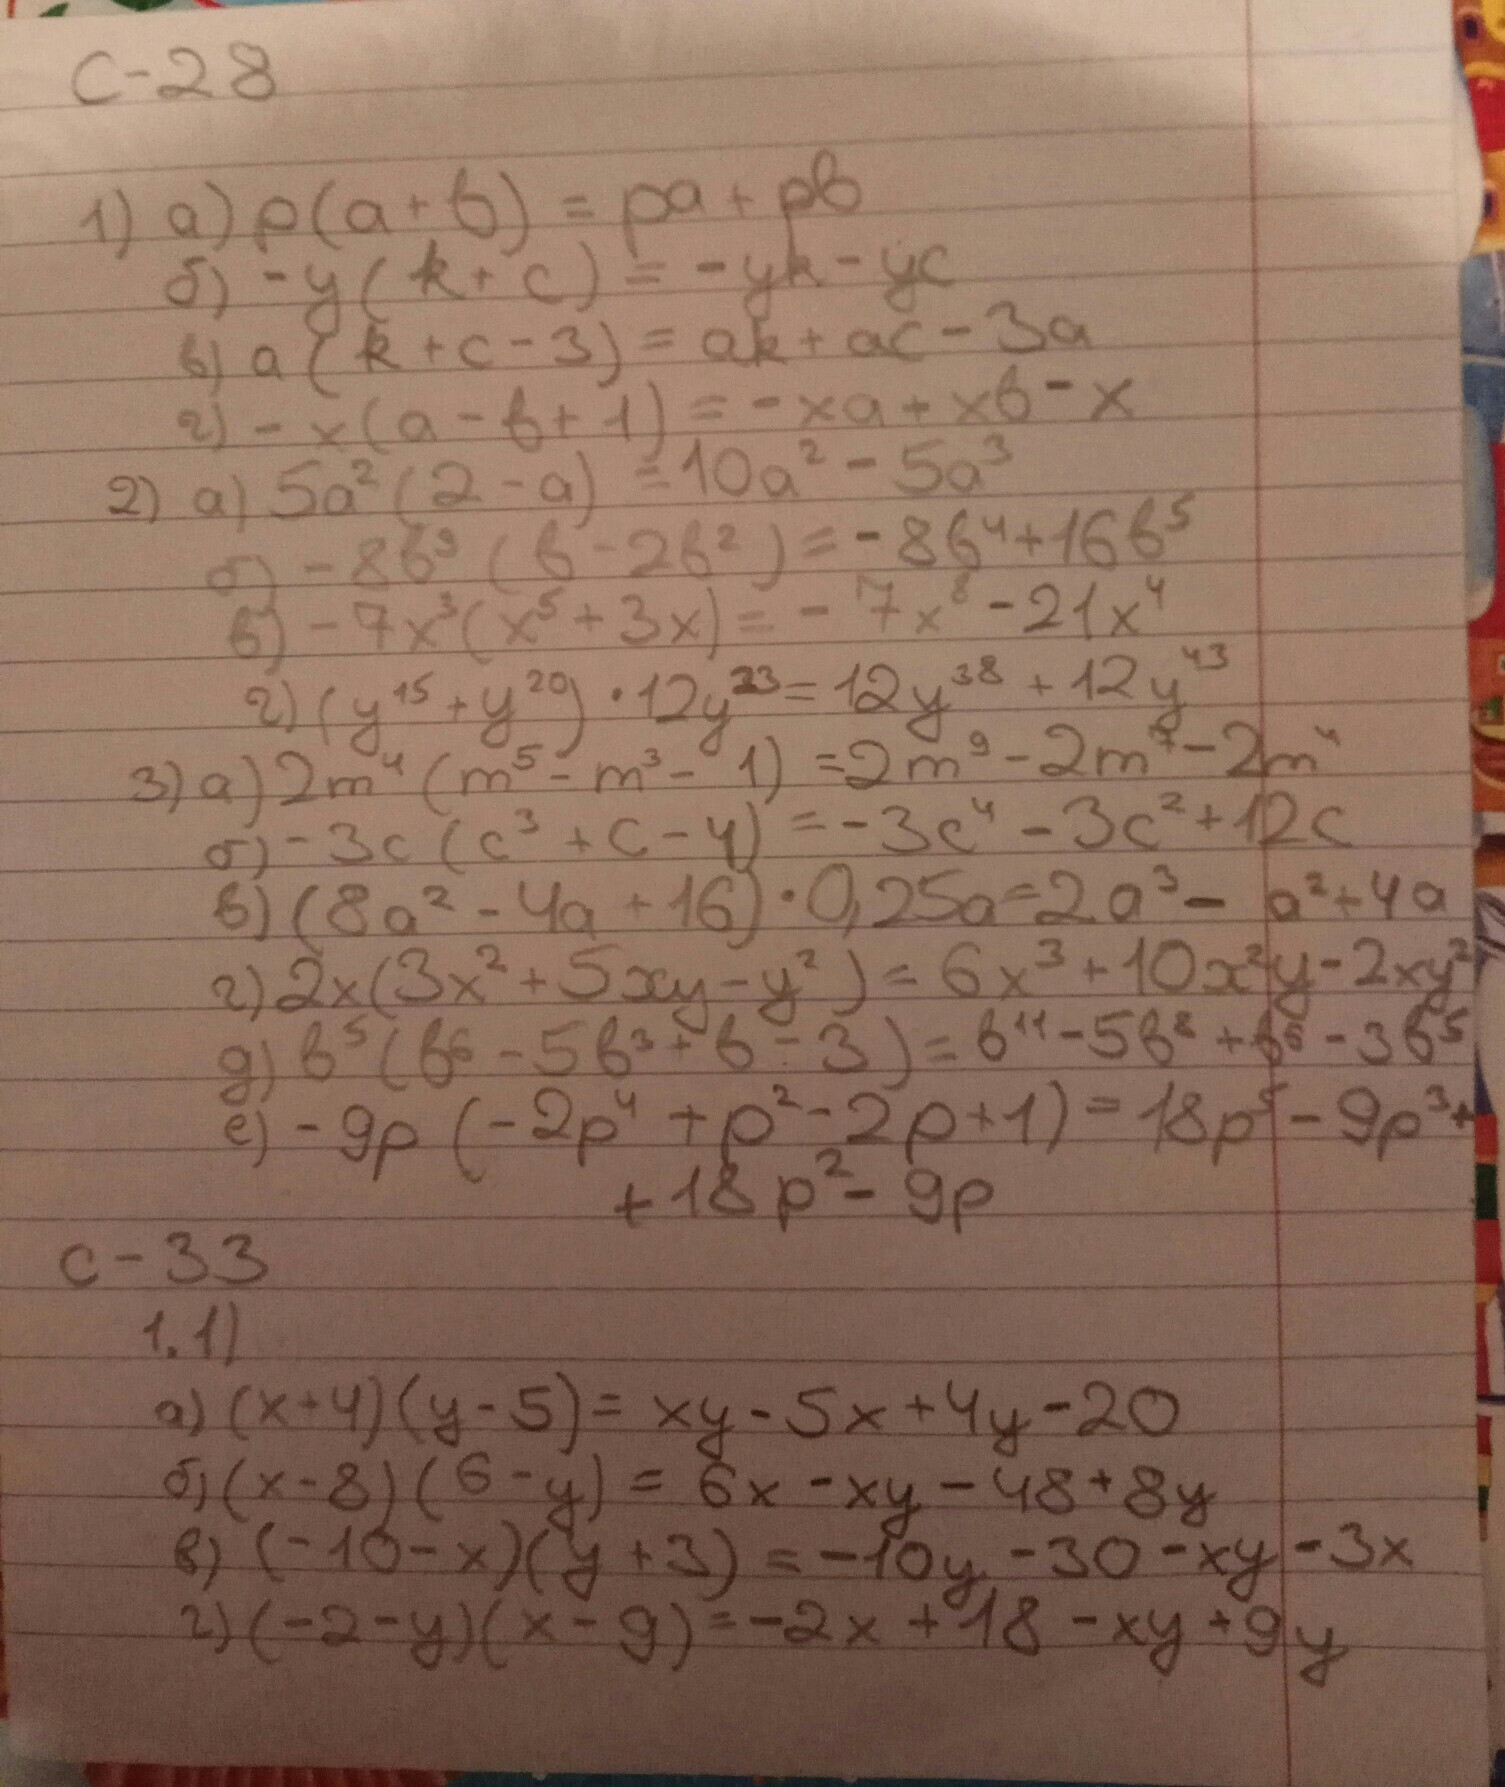 С-28
1) а) p(a+b) = pa + pb
б) -y(k+c) = -yk - yc
в) a(k+c-3) = ak + ac - 3a
г) -x(a-b+1) = -xa + xb - x
2) а) 5a²(2-a) = 10a² - 5a³
б) -8b³(b-2b²) = -8b⁴+16b⁵
в) -7x³(x⁵+3x) = -7x⁸-21x⁴
г) (y¹⁵+y²⁰)·12y²³=12y³⁸+12y⁴³
3) а) 2m⁴(m⁵-m³-1) =2m⁹-2m⁷-2m⁴
б) -3c(c³+c-4) =-3c⁴-3c²+12c
в) (8a²-4a+16)·0,25a=2a³- a²+4a
г) 2x(3x²+5xy-y²)= 6x³+10x²y-2xy²
д) b⁵(b⁶-5b³+b-3)=b¹¹-5b⁸+b⁶-3b⁵
е) -9p(-2p⁴+p²-2p+1)=18p⁵-9p³+
+18p²-9p
С-33
1.1)
а) (x+4)(y-5)= xy-5x+4y-20
б) (x-8)(6-y)= 6x-xy-48+8y
в) (-10-x)(y+3) =-10y-30-xy-3x
г) (-2-y)(x-9)=-2x+18-xy+9y